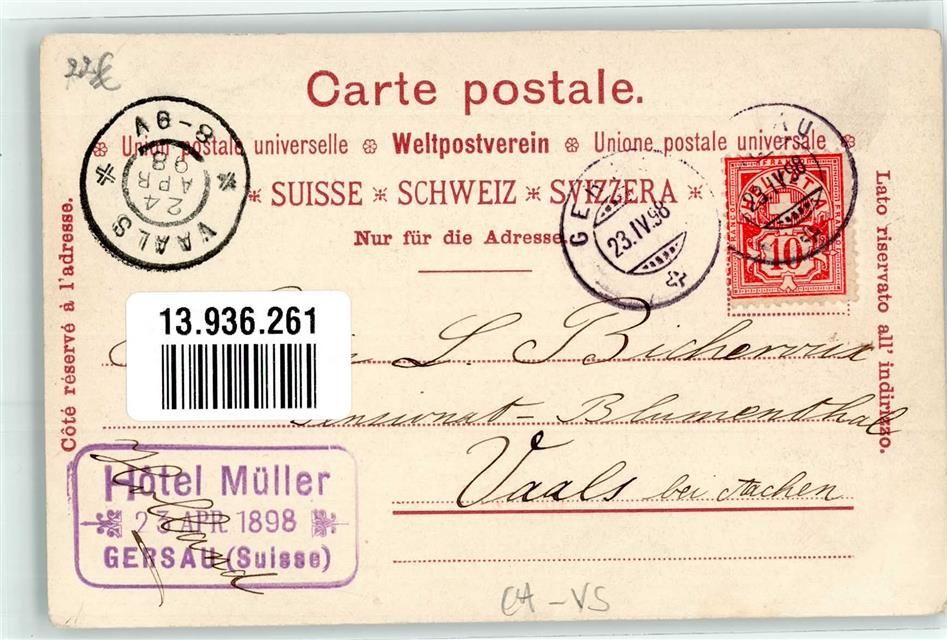 22€
Carte postale.
Union postale universelle Weltpostverein Unione postale universale
SUISSE SCHWEIZ SVIZZERA
Nur für die Adresse
Côté réservé à l'adresse.
Lato riservato all' indirizzo.
VAALS
24 APR 98
8-9V
GE
23.IV.98
AU
23.IV.98
FRANCO
HELVETIA
10
13.936.261
L. Bicheroux
Pensionat - Blumenthal
Vaals bei Aachen
Holland
Hôtel Müller
23 APR 1898
GERSAU (Suisse)
CH - VS